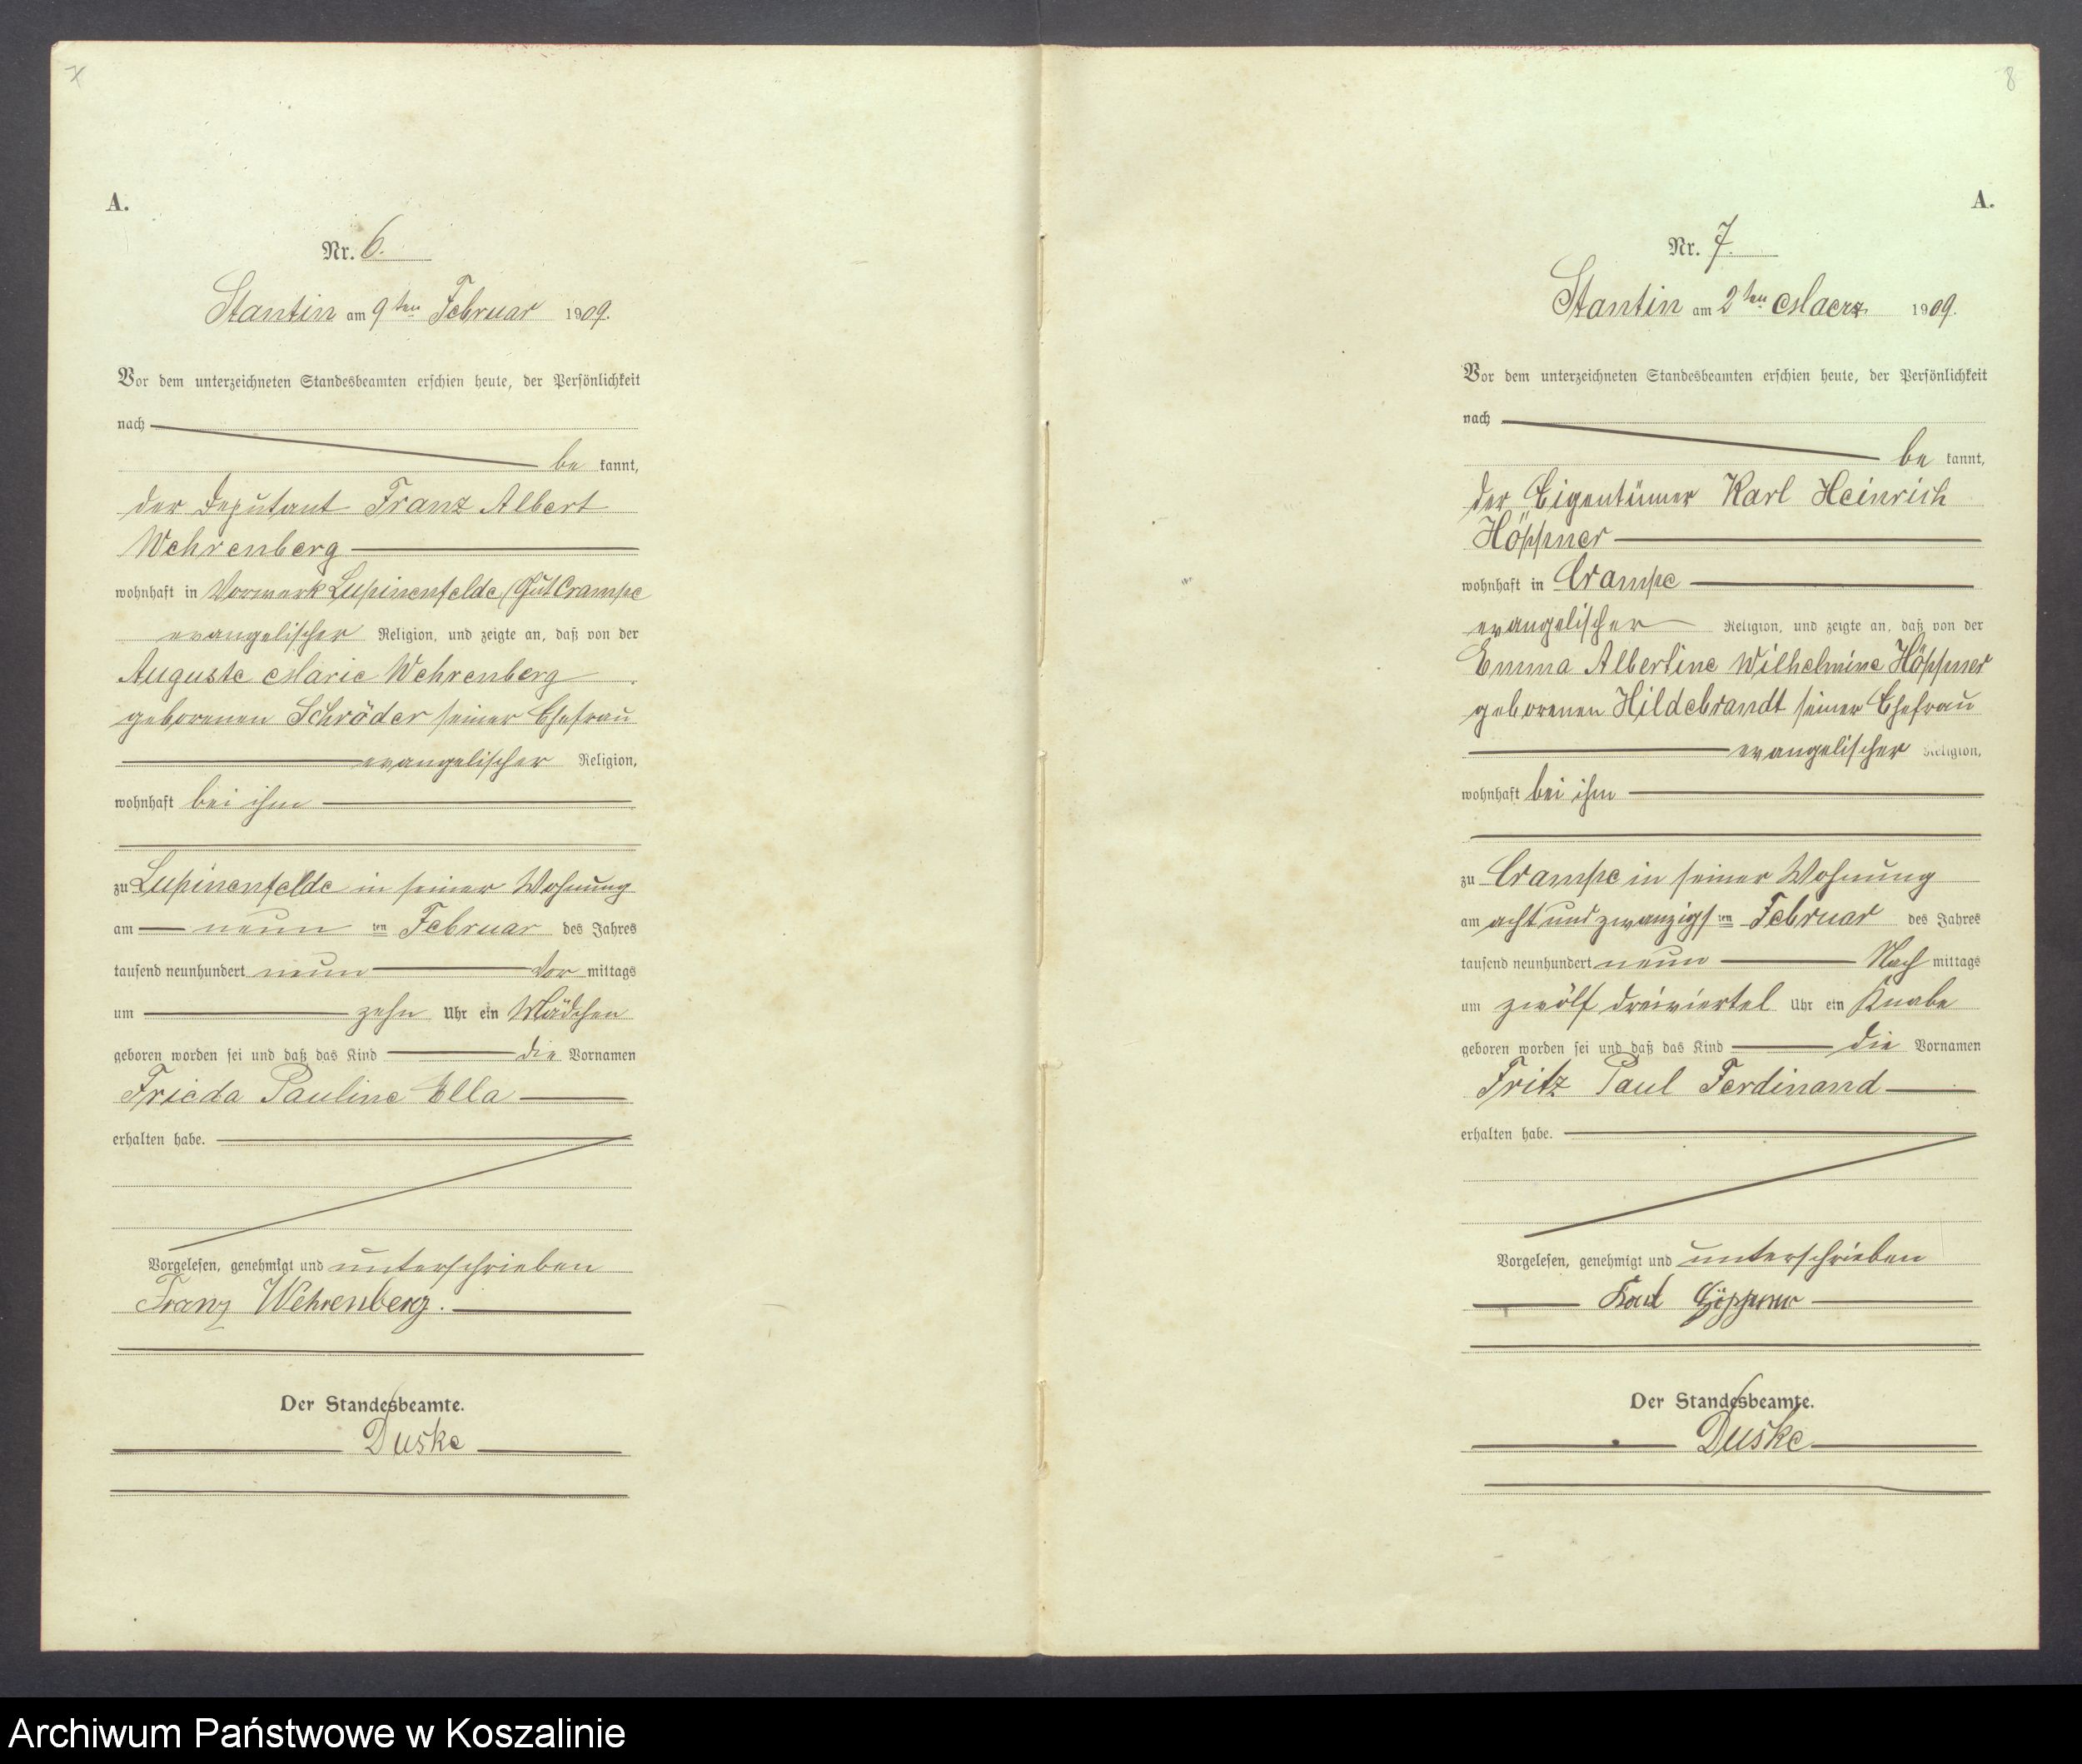 7
A.
Nr. 6.
Stantin am 9ten Februar 1909.
Vor dem unterzeichneten Standesbeamten erschien heute, der Persönlichkeit
nach
be kannt,
der Deputant Franz Albert
Wehrenberg
wohnhaft in Vorwerk Lupinenfelde, Gut Crampe
evangelischer Religion, und zeigte an, daß von der
Auguste Marie Wehrenberg
geborenen Schröder seiner Ehefrau
evangelischer Religion,
wohnhaft bei ihm
zu Lupinenfelde in seiner Wohnung
am neun ten Februar des Jahres
tausend neunhundert neun Vor mittags
um zehn Uhr ein Mädchen
geboren worden sei und daß das Kind die Vornamen
Frieda Pauline Ella
erhalten habe.
Vorgelesen, genehmigt und unterschrieben
Franz Wehrenberg.
Der Standesbeamte.
Duske
8
A.
Nr. 7.
Stantin am 2ten Maerz 1909.
Vor dem unterzeichneten Standesbeamten erschien heute, der Persönlichkeit
nach
be kannt,
der Eigentümer Karl Heinrich
Höppner
wohnhaft in Crampe
evangelischer Religion, und zeigte an, daß von der
Emma Albertine Wilhelmine Höppner
geborenen Hildebrandt seiner Ehefrau
evangelischer Religion,
wohnhaft bei ihm
zu Crampe in seiner Wohnung
am acht und zwanzigs ten Februar des Jahres
tausend neunhundert neun Nach mittags
um zwölf dreiviertel Uhr ein Knabe
geboren worden sei und daß das Kind die Vornamen
Fritz Paul Ferdinand
erhalten habe.
Vorgelesen, genehmigt und unterschrieben
Karl Höppner
Der Standesbeamte.
Duske
Archiwum Państwowe w Koszalinie